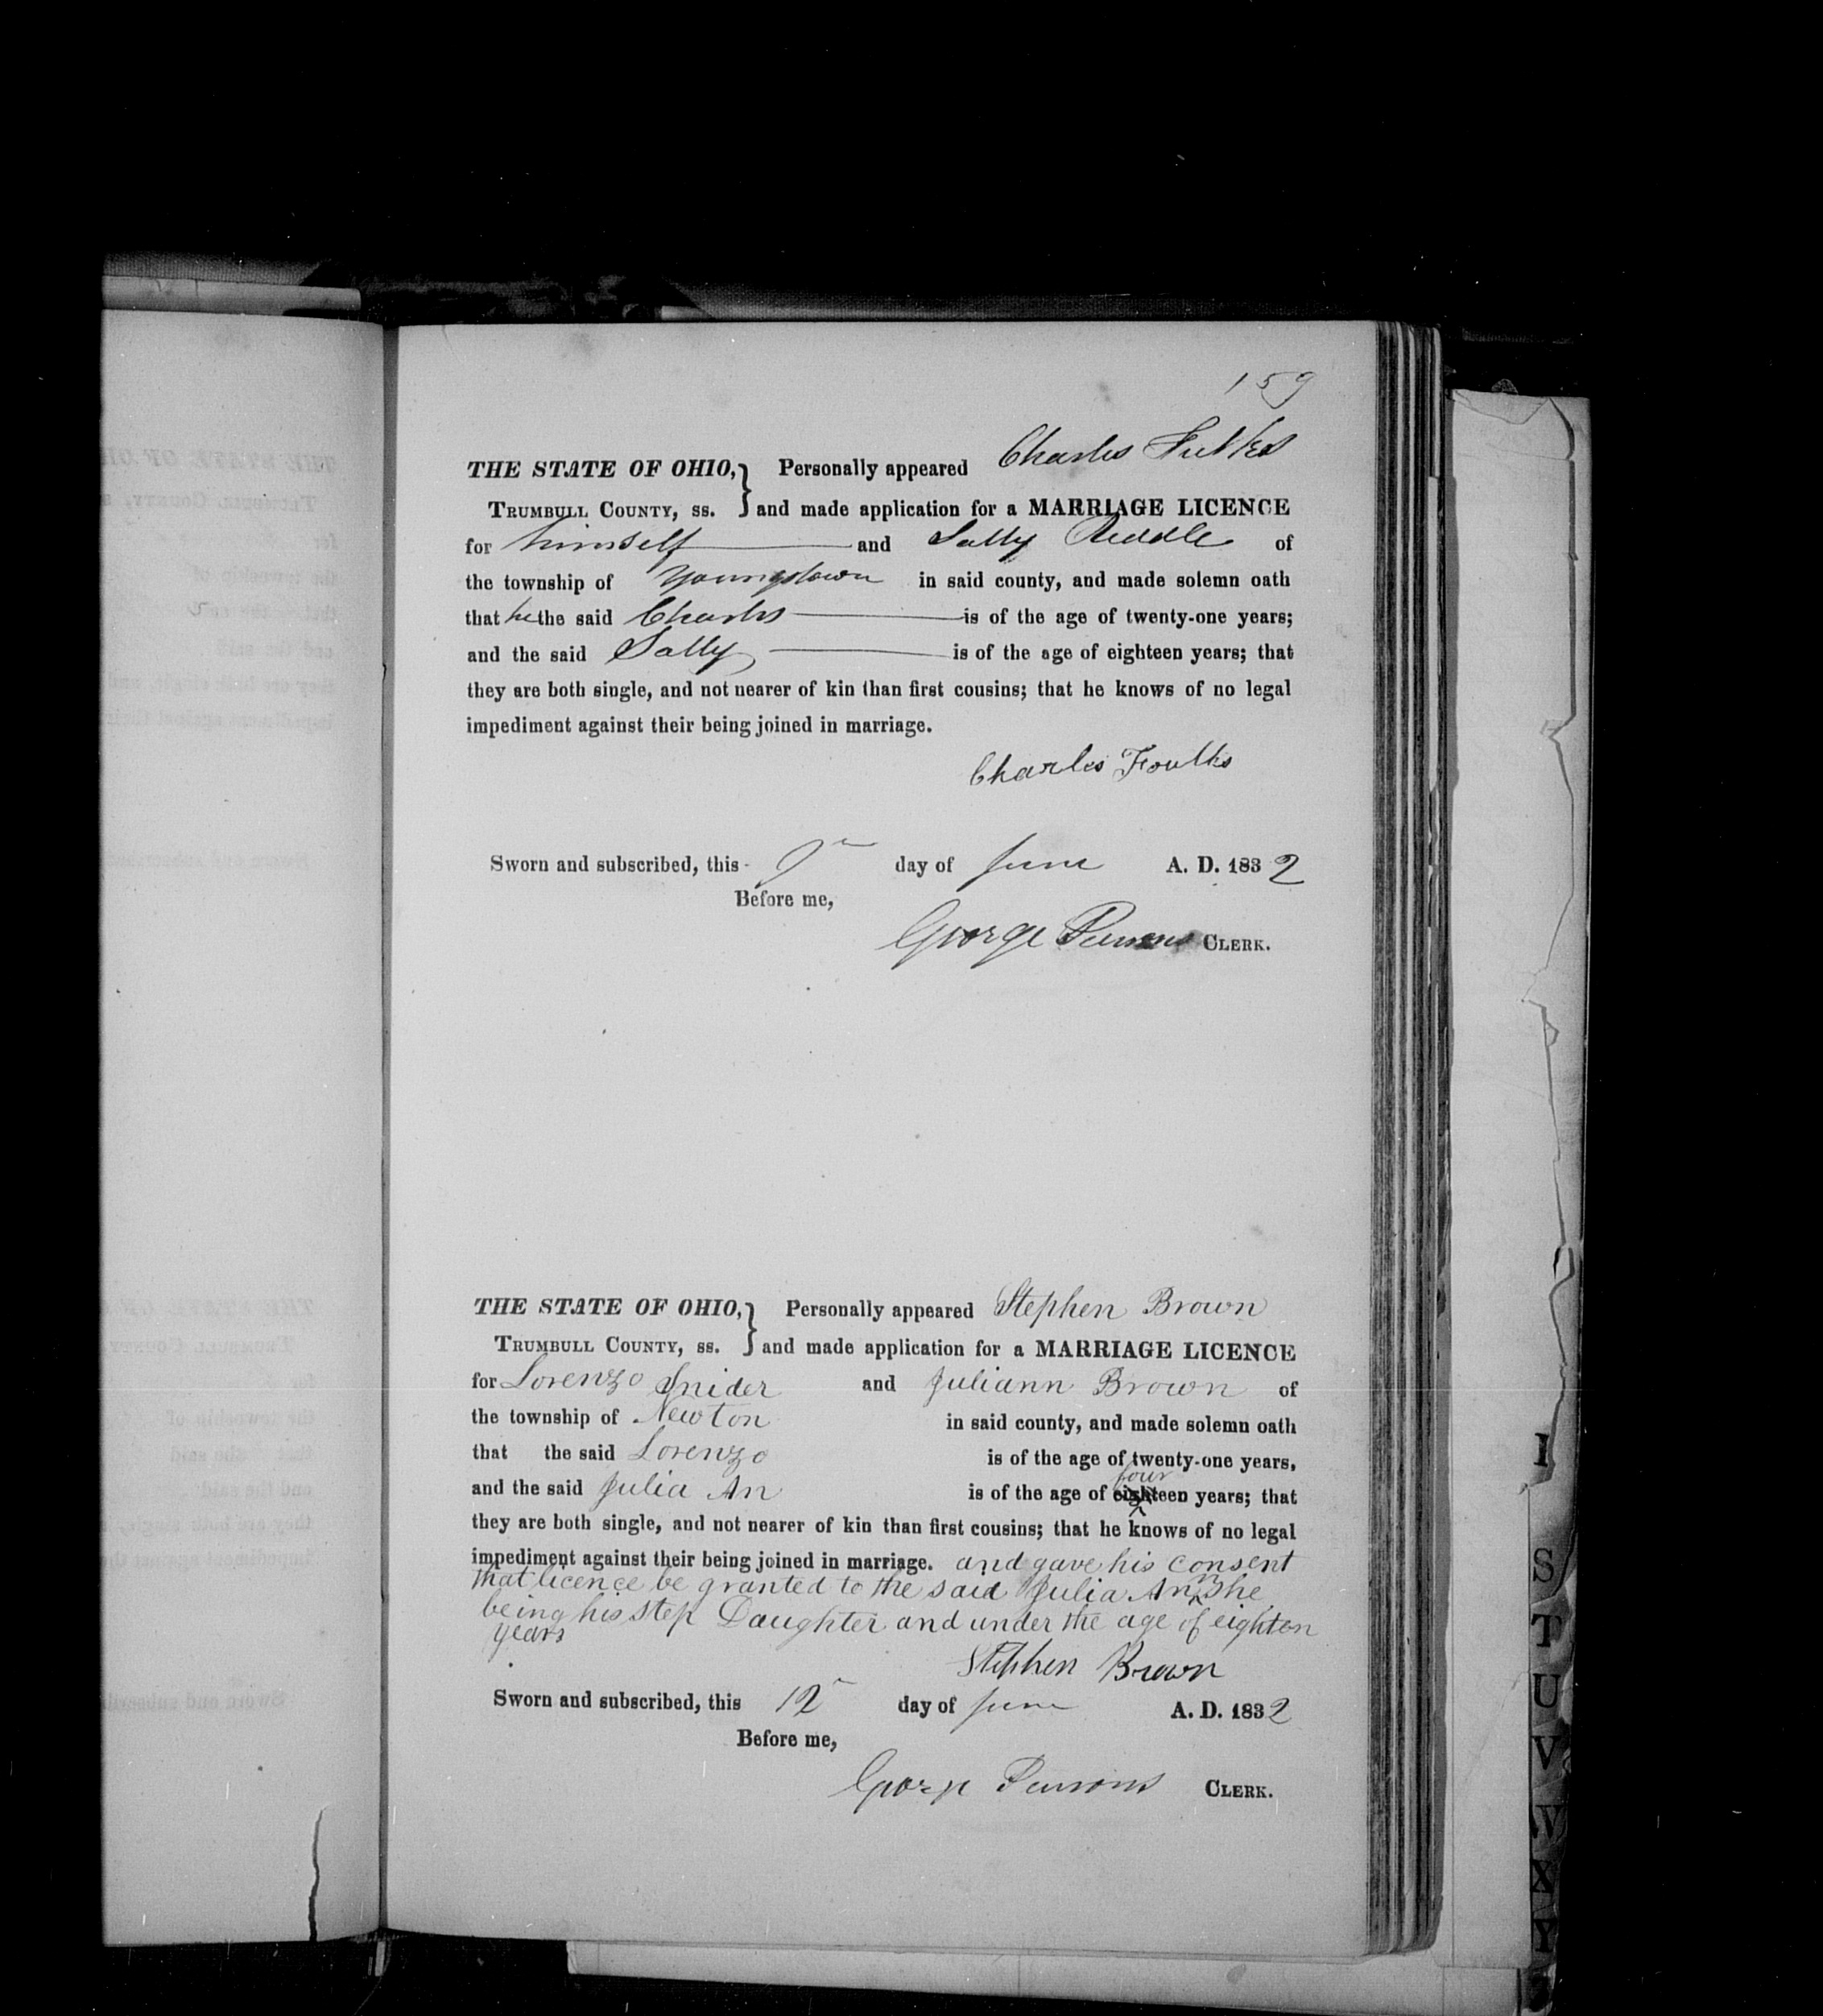 159
THE STATE OF OHIO, } Personally appeared Charles Fulks
TRUMBULL COUNTY, ss. } and made application for a MARRIAGE LICENCE
for himself and Sally Riddle of
the township of Youngstown in said county, and made solemn oath
that he the said Charles is of the age of twenty-one years;
and the said Sally is of the age of eighteen years; that
they are both single, and not nearer of kin than first cousins; that he knows of no legal
impediment against their being joined in marriage.
Charles Foulks
Sworn and subscribed, this day of June A. D. 1832
Before me,
George Parsons CLERK.
THE STATE OF OHIO, } Personally appeared Stephen Brown
TRUMBULL COUNTY, ss. } and made application for a MARRIAGE LICENCE
for Lorenzo Snider and Juliann Brown of
the township of Newton in said county, and made solemn oath
that the said Lorenzo is of the age of twenty-one years,
four
and the said Julia An is of the age of eighteen years; that
they are both single, and not nearer of kin than first cousins; that he knows of no legal
impediment against their being joined in marriage. and gave his consent
that licence be granted to the said Julia Ann she
being his step Daughter and under the age of eighten
years
Stephen Brown
Sworn and subscribed, this 12 day of June A. D. 1832
Before me,
George Parsons CLERK.
I
S
T
U
V
W
X
Y